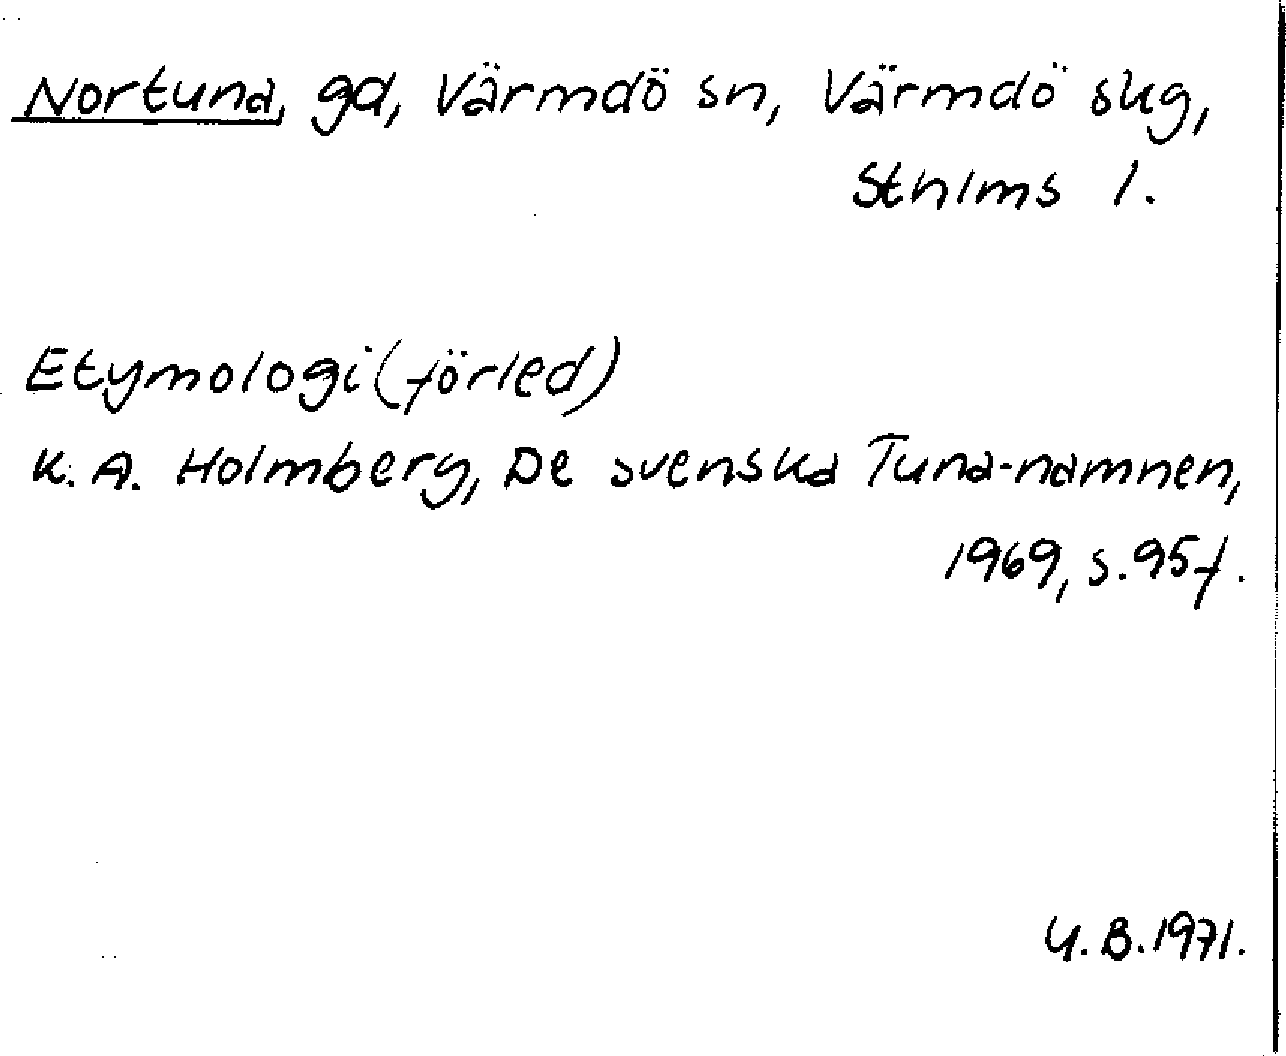 Nortuna, gd, Värmdö sn, Värmdö skg,
Sthlms l.
Etymologi (förled)
K. A. Holmberg, De svenska Tuna-namnen,
1969, s. 95 f.
U. B. 1971.